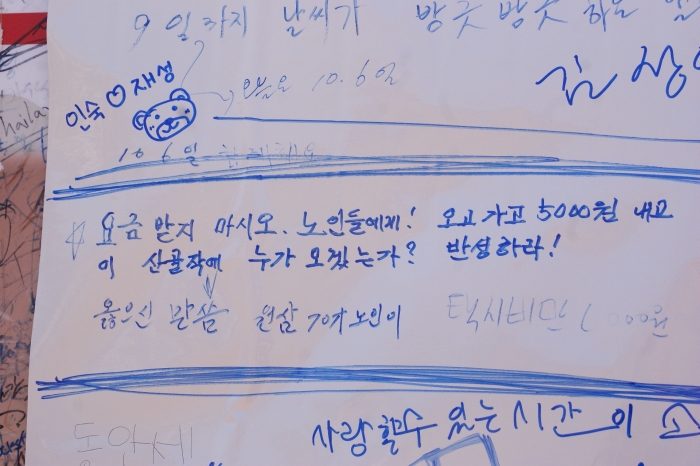 9일까지 날씨가 방긋방긋 하는
김
인숙♡재성
오늘은 10.6일
10 6일
요금 받지 마시오. 노인들에게! 오고 가고 5000원 내고
이 산골짝에 누가 오겠는가? 반성하라!
옳으신 말씀 원삼 70가 노인이
택시비만 000원
동안세
사랑할수 있는 시간이 소